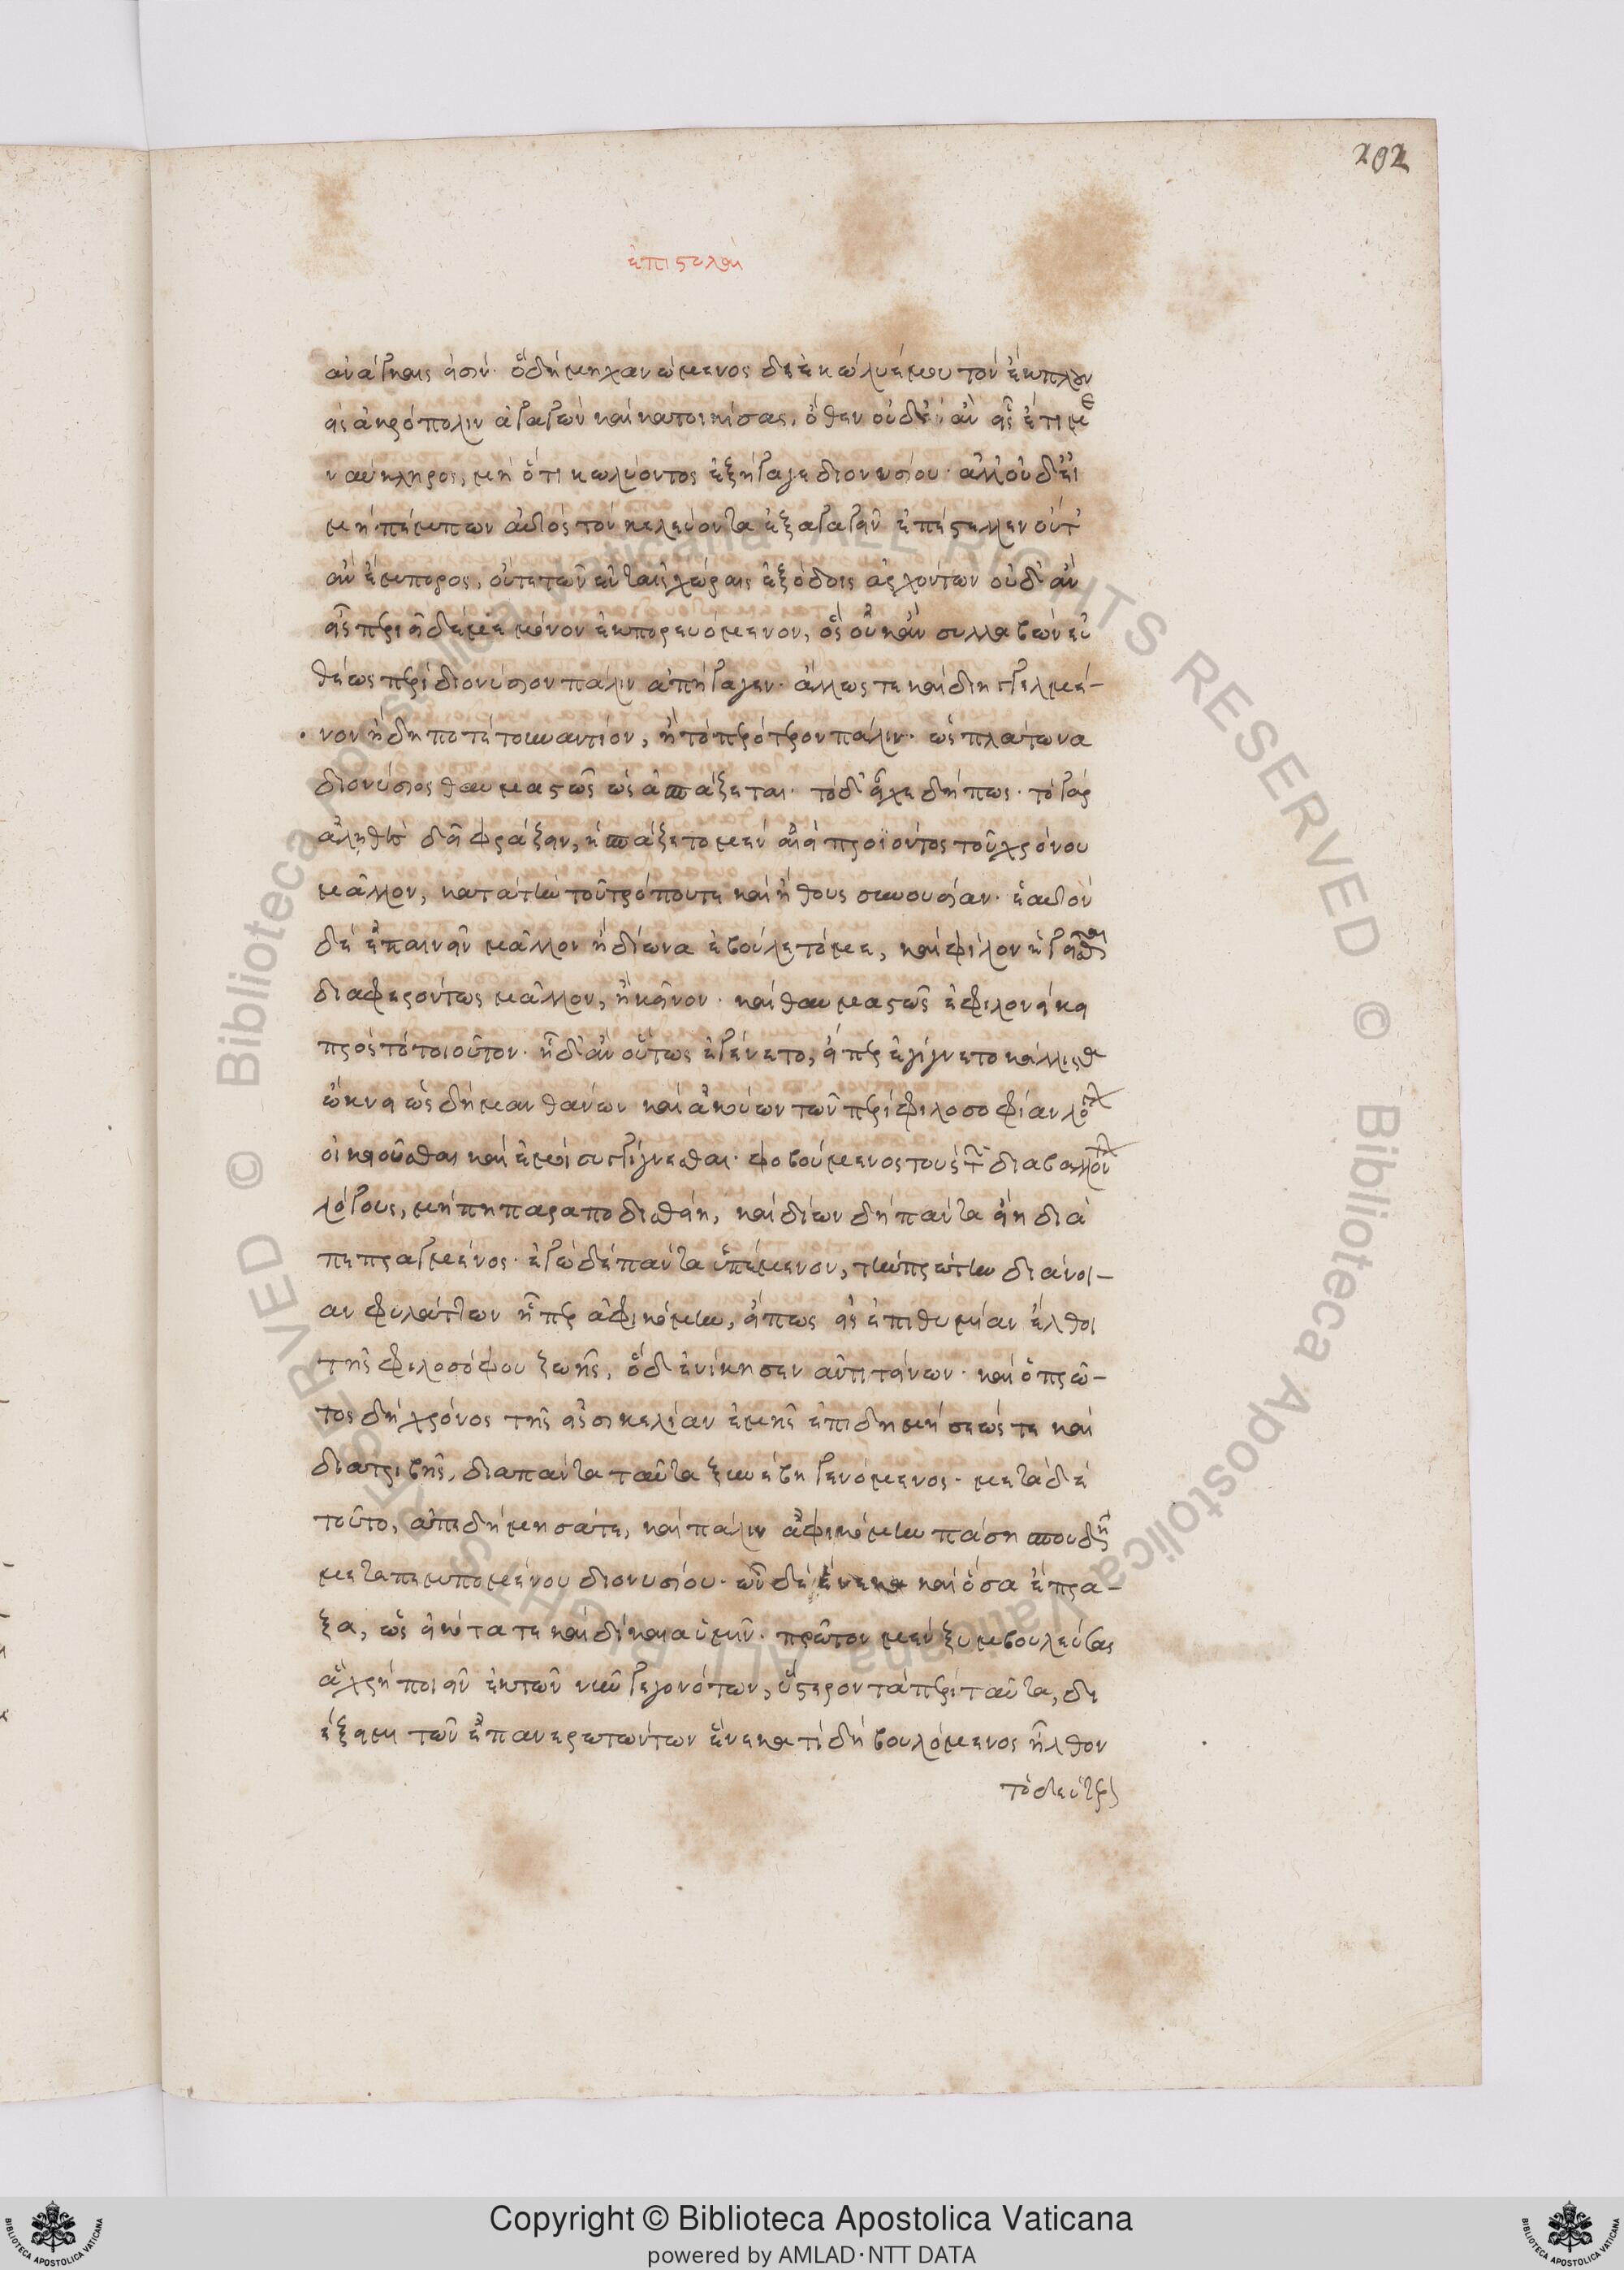 202
ἐπιστολαὶ
ἀνάγκαις εἰσίν· ὃ δὴ μηχανώμενος διεκώλυέ μου τὸν ἔκπλουν
εἰς ἀκρόπολιν ἀγαγὼν καὶ κατοικίσας, ὅθεν οὐδ' ἂν εἷς ἔτι με
ναύκληρος, μὴ ὅτι κωλύοντος ἐξήγαγε διονυσίου· ἀλλ' οὐδ' εἰ
μὴ πέμπων αὐτὸς τὸν κελεύοντα ἐξαγαγεῖν ἐπέστελλεν οὔτ'
ἂν ἔμπορος, οὔτε τῶν ἐν ταῖς χώραις ἐξόδοις ἀρχόντων οὐδ' ἂν
εἷς περιεῖδέ με μόνον ἐκπορευόμενον, ὃς οὐκ ἂν συλλαβὼν εὐ
θέως περὶ διονύσιον πάλιν ἀπήγαγεν· ἄλλως τε καὶ διηγγελμέ-
νον ἤδη ποτὲ τοὐναντίον, ἢ τὸ πρότερον πάλιν· ὡς πλάτωνα
διονύσιος θαυμαστῶς ὡς ἀσπάζεται· τὸ δ' εἶχε δή πως· τὸ γὰρ
ἀληθὲς δεῖ φράζειν, ἠσπάζετο μὲν ἀεὶ προϊόντος τοῦ χρόνου
μᾶλλον, κατὰ τὴν τοῦ τρόπου τε καὶ ἤθους συνουσίαν· ἑαυτὸν
δὲ ἐπαινεῖν μᾶλλον ἢ δίωνα ἐβούλετό με, καὶ φίλον ἡγεῖσθαι
διαφερόντως μᾶλλον, ἢ κεῖνον· καὶ θαυμαστῶς ἐφιλονείκει
πρὸς τὸ τοιοῦτον· ᾗ δ' ἂν οὕτως ἐγένετο, εἴπερ ἐγίγνετο κάλλιστα
ὤκνει ὡς δὴ μανθάνων καὶ ἀκούων τῶν περὶ φιλοσοφίαν λό
οἰκειοῦσθαι καὶ ἐμοὶ συγγίγνεσθαι· φοβούμενος τοὺς τῶν διαβαλλόν
λόγους, μή πη παραποδισθείη, καὶ δίων δὴ πάντα εἴη δια
πεπραγμένος· ἐγὼ δὲ πάντα ὑπέμενον, τὴν πρώτην διάνοι-
αν φυλάττων ᾗπερ ἀφικόμην, εἴ πως εἰς ἐπιθυμίαν ἔλθοι
τῆς φιλοσόφου ζωῆς, ὃ δ' ἐνίκησεν ἀντιτείνων· καὶ ὁ πρῶ-
τος δὴ χρόνος τῆς εἰς σικελίαν ἐμῆς ἐπιδημήσεώς τε καὶ
διατριβῆς, διὰ πάντα ταῦτα ξυνέβη γενόμενος· μετὰ δὲ
τοῦτο, ἀπεδήμησά τε, καὶ πάλιν ἀφικόμην πάσῃ σπουδῇ
μεταπεμπομένου διονυσίου· ὧν δὲ ἕνεκα καὶ ὅσα ἔπρα-
ξα, ὡς εἰκότα τε καὶ δίκαια ὑμῖν· πρῶτον μὲν ξυμβουλεύσας
ἃ χρὴ ποιεῖν ἐκ τῶν νῦν γεγονότων, ὕστερον τὰ περὶ ταῦτα, δι
έξειμι τῶν ἐπανερωτώντων ἕνεκα τί δὴ βουλόμενος ἦλθον
τὸ δεύτερον